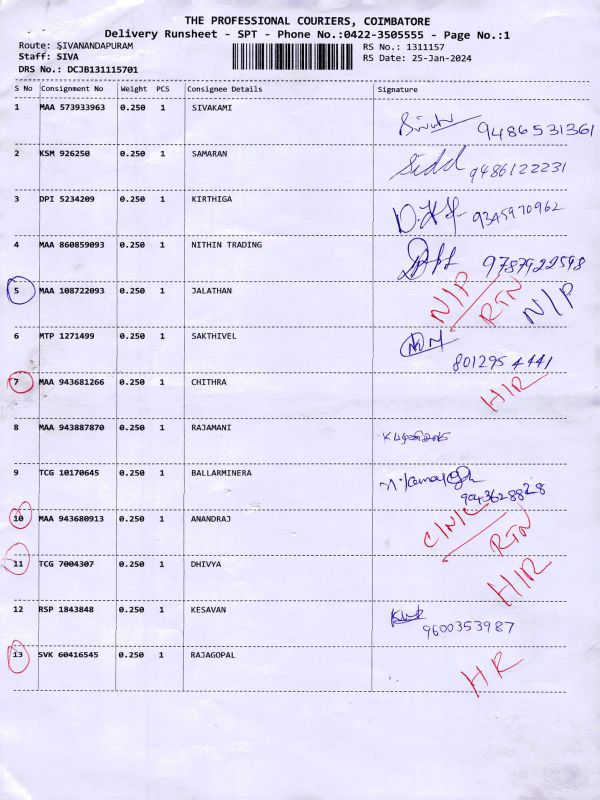 THE PROFESSIONAL COURIERS, COIMBATORE
Delivery Runsheet - SPT - Phone No.:0422-3505555 - Page No.:1
Route: SIVANANDAPURAM RS No.: 1311157
Staff: SIVA RS Date: 25-Jan-2024
DRS No.: DCJB131115701
S No Consignment No Weight PCS Consignee Details Signature
1 MAA 573933963 0.250 1 SIVAKAMI
9486531361
2 KSM 926250 0.250 1 SAMARAN
9486122231
3 DPI 5234209 0.250 1 KIRTHIGA
9345970962
4 MAA 860859093 0.250 1 NITHIN TRADING
9787922598
5 MAA 108722093 0.250 1 JALATHAN N/P RTN N/P
6 MTP 1271499 0.250 1 SAKTHIVEL
8012954441
7 MAA 943681266 0.250 1 CHITHRA H/R
8 MAA 943887870 0.250 1 RAJAMANI
9 TCG 10170645 0.250 1 BALLARMINERA
9943628828
10 MAA 943680913 0.250 1 ANANDRAJ C/N/C RTN
11 TCG 7004307 0.250 1 DHIVYA H/R
12 RSP 1843848 0.250 1 KESAVAN
9600353987
13 SVK 60416545 0.250 1 RAJAGOPAL HR